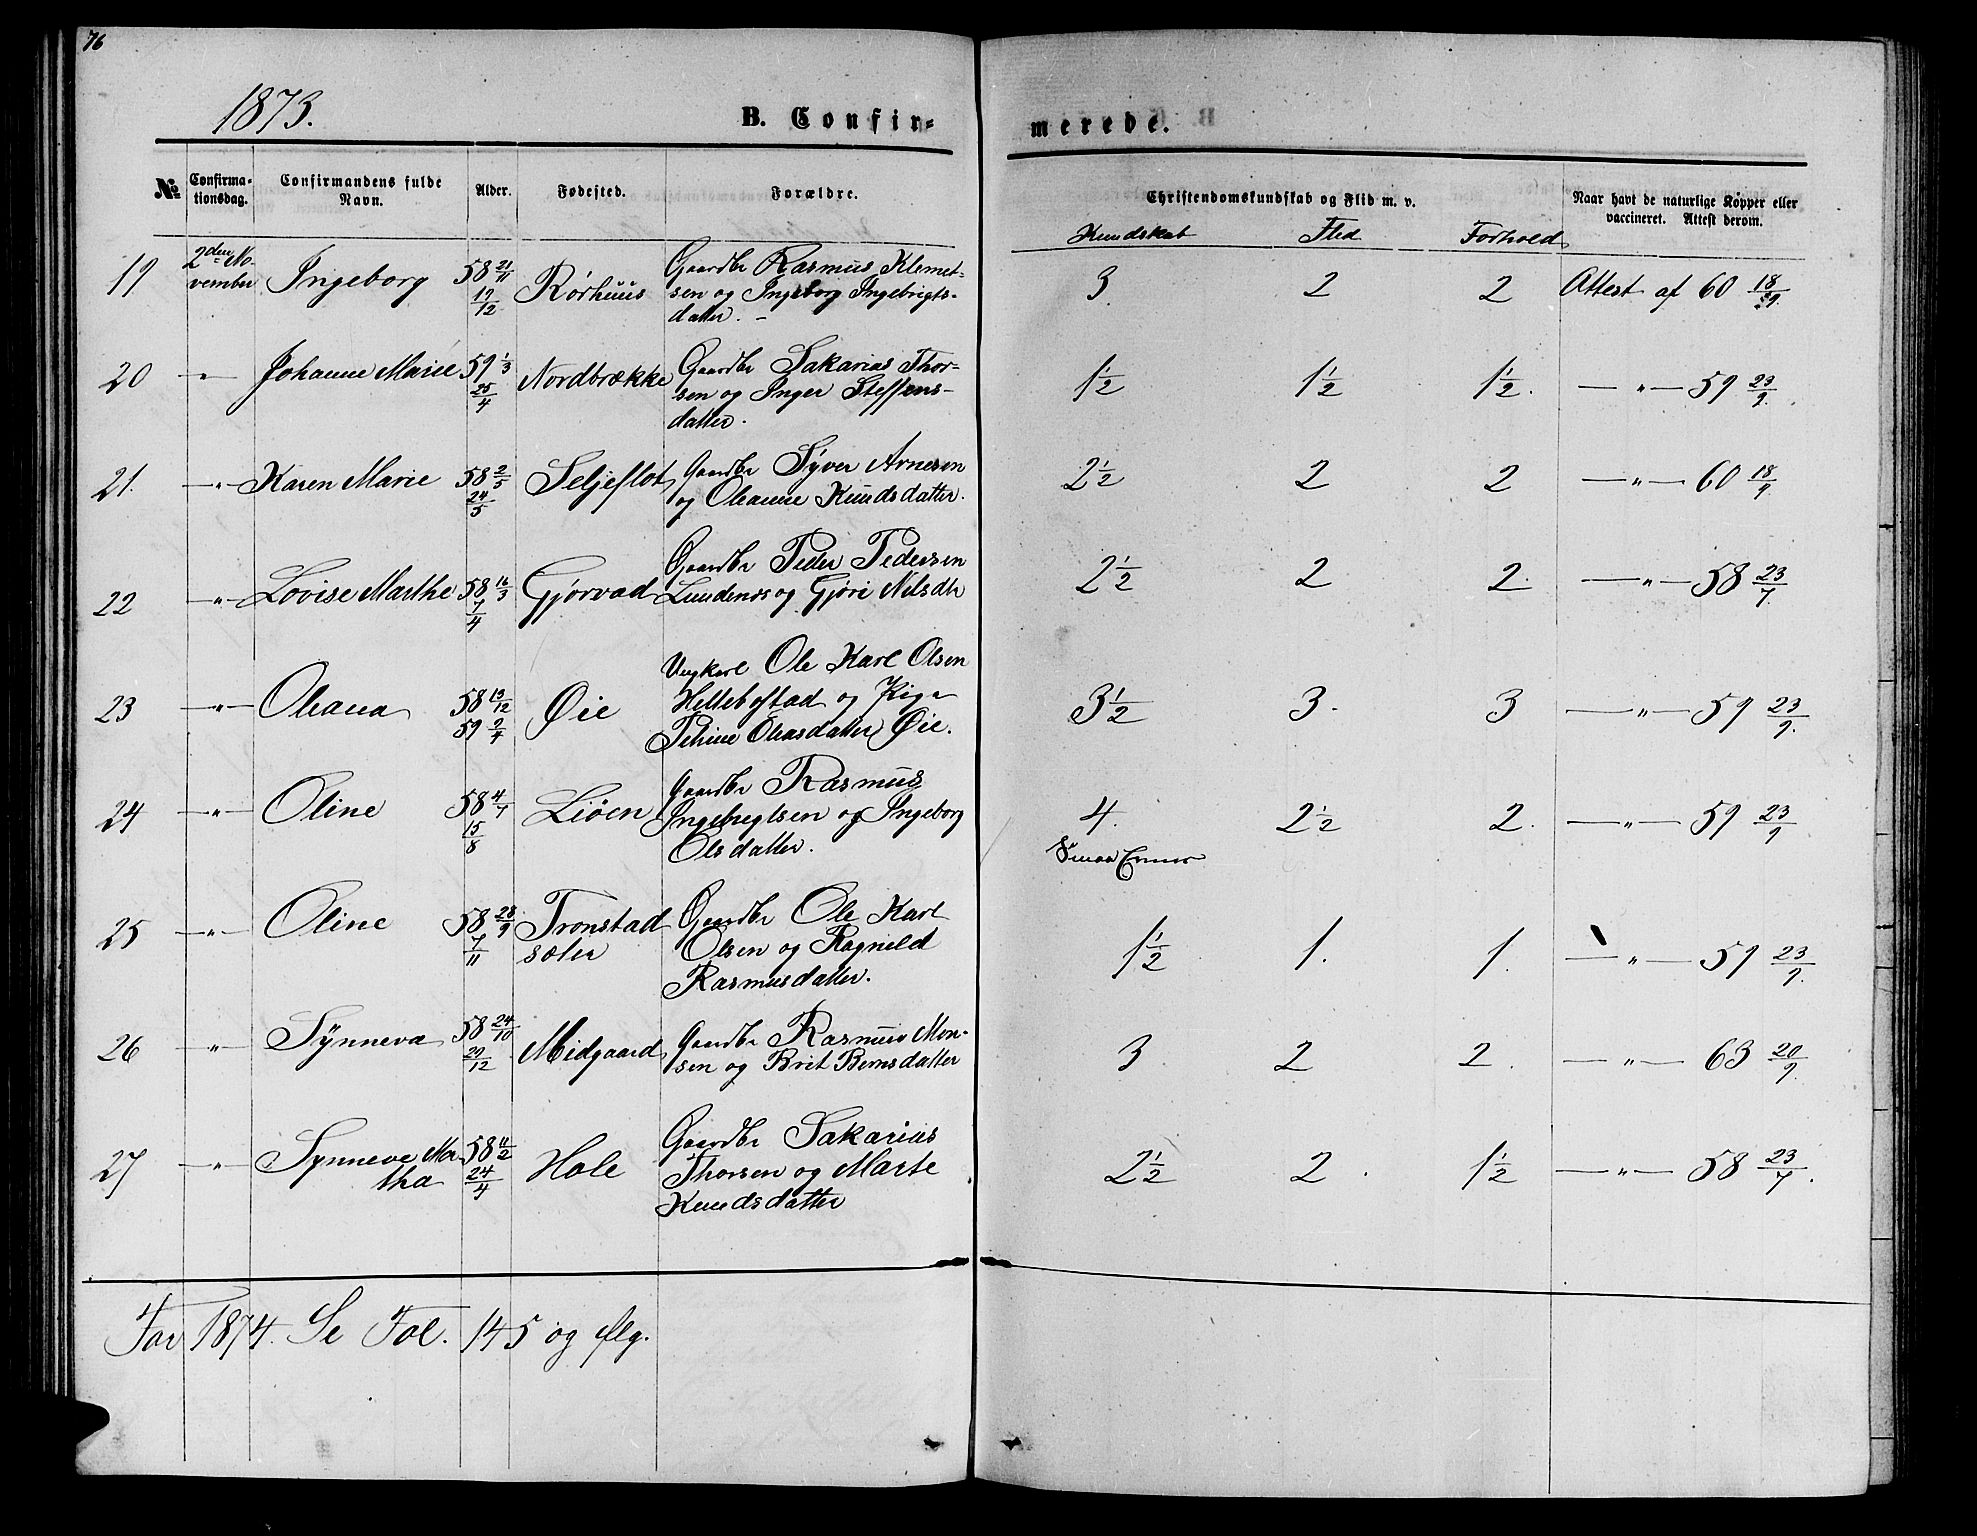 76
1873.
B. Confir-
merede.
No
Confirma-
tionsdag.
Confirmandens fulde
Navn.
Alder.
Fødested.
Forældre.
Christendomskundskab og Flid m. v.
Naar havt de naturlige Kopper eller
vaccineret. Attest derom.
Kundskab Flid Forhold
19 2den No-
vember Ingeborg 58 21/11
17/12 Rörhuus Gaardbr Rasmus Klemet-
sen og Ingeborg Ingebrigts-
datter. 3 2 2 Attest af 60 18/9.
20 " Johanne Marie 59 1/3
25/4 Nordbrække Gaardbr Sakarias Thor-
sen og Inger Steffens-
datter. 1 1/2 1 1/2 1 1/2. " 59 23/9.
21. " Karen Marie 58 2/5
24/5 Seljeflot Gaardbr Syver Arnesen
og Oleanne Knudsdatter. 2 1/2 2 2 " 60 18/9
22 " Lovise Marthe 58 16/3
7/4 Gjørvad Gaardbr Peder Pedersen
Lundenes og Gjøri Nilsdtr 2 1/2 2 2. " 58 23/7.
23 " Oleana 58 13/12
59 2/4 Øie Ungkarl Ole Karl Olsen
Hellebostad og Pige
Petrine Olensdatter Øie. 3 1/2 3. 3 " 59 23/9.
24 " Oline 58 4/7
15/8 Liöen Gaardbr Rasmus
Ingebregtsen og Ingeborg
Olsdatter. 4. 2 1/2 2. " 59 23/9
Smaa Evner
25 " Oline 58 28/9
7/11 Tronstad
sæter Gaardbr Ole Karl
Olsen og Ragnild
Rasmusdatter. 1 1/2 1. 1. " 59 23/9.
26 " Synneva 58 24/10
29/12 Midgaard Gaardbr Rasmus Mon-
sen og Brit Berns datter 3 2 2. " 63 20/9.
27 " Synneve Mar
tha 58 11/2
24/4 Hole Gaardbr Sakarius
Thorsen og Marte
Knudsdatter 2 1/2 2. 1 1/2 " 58 23/7.
For 1874. Se Fol. 145 og flg.